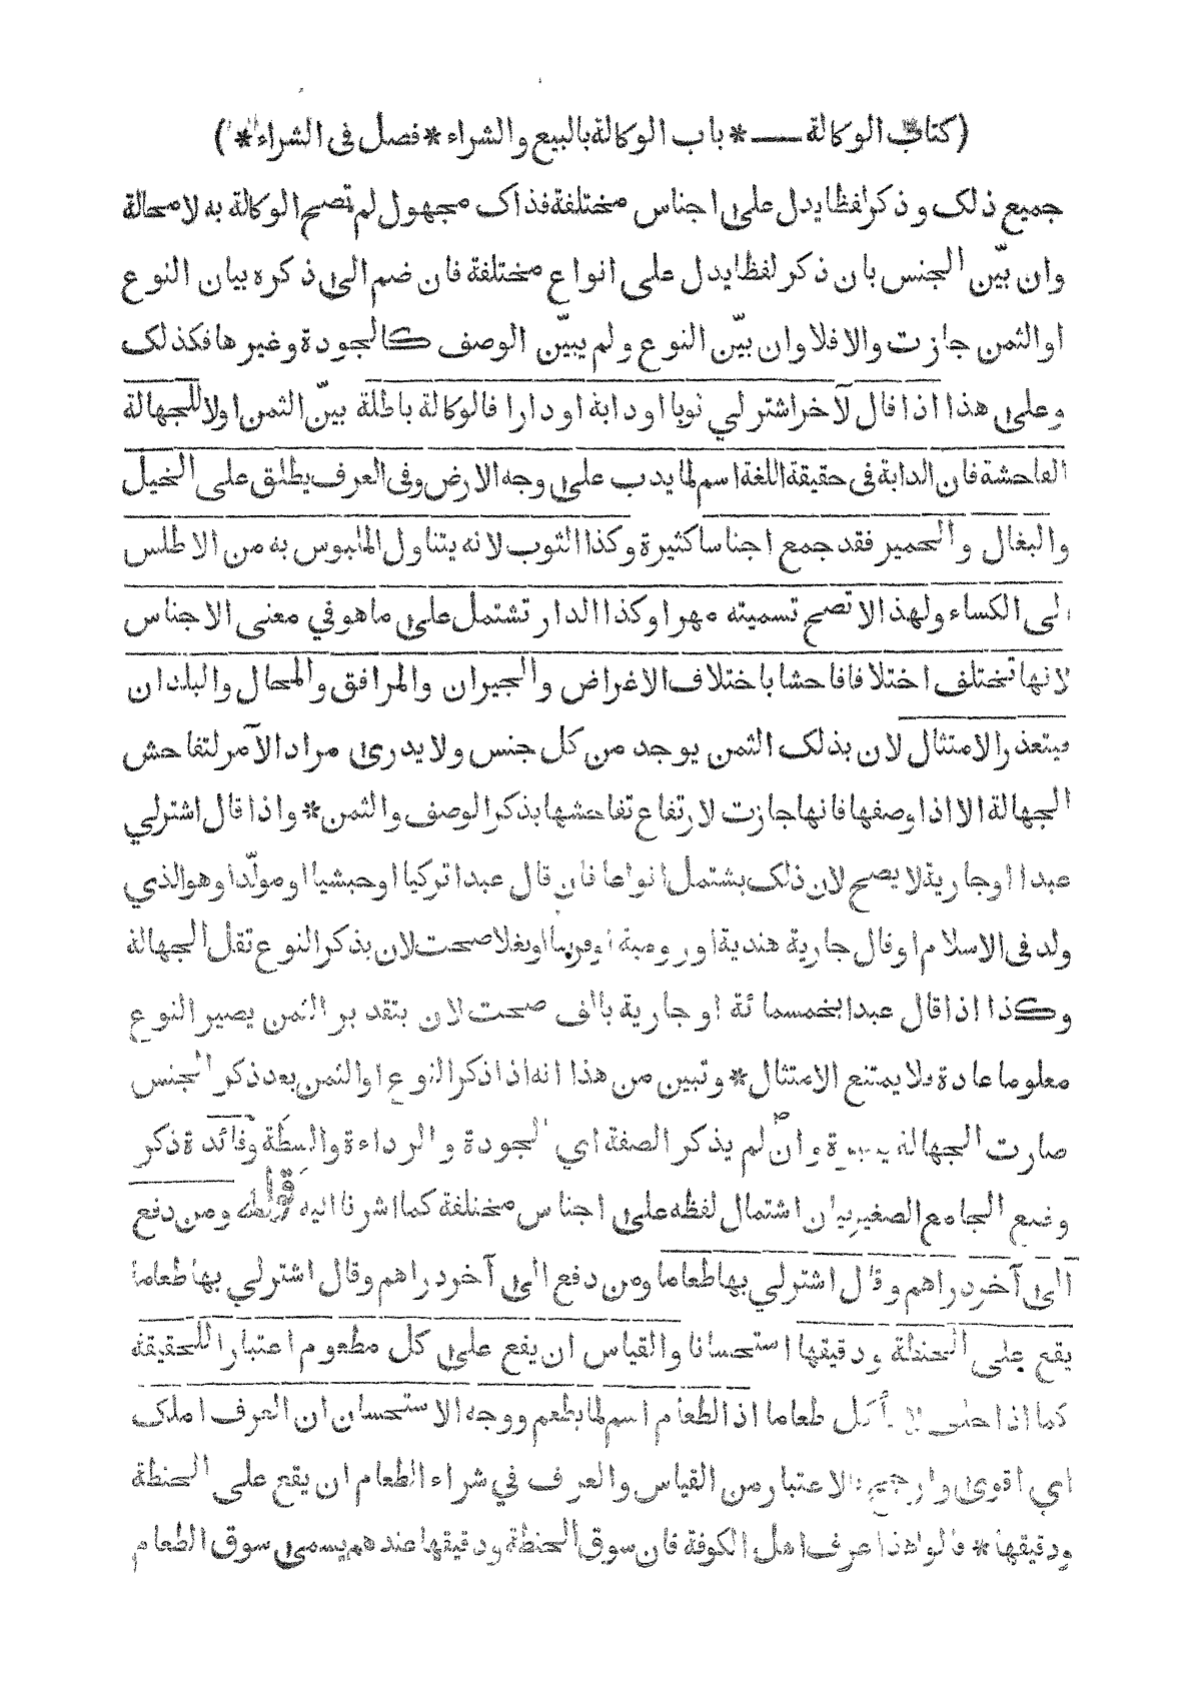 (كتاب الوكالة — * باب الوكالة بالبيع والشراء * فصل فى الشراء *)
جميع ذلك وذكر لفظا يدل على اجناس مختلفة فذاك مجهول لم تصح الوكالة به لا محالة
وان بيّن الجنس بان ذكر لفظا يدل على انواع مختلفة فان ضم الى ذكره بيان النوع
او الثمن جازت والا فلا وان بيّن النوع ولم يبيّن الوصف كالجودة وغيرها فكذلك
وعلى هذا اذا قال لآخر اشتر لي ثوبا او دابة او دارا فالوكالة باطلة بيّن الثمن او لا للجهالة
الفاحشة فان الدابة فى حقيقة اللغة اسم لما يدب على وجه الارض وفى العرف يطلق على الخيل
والبغال والحمير فقد جمع اجناسا كثيرة وكذا الثوب لانه يتناول الملبوس به من الاطلس
الى الكساء ولهذا لا تصح تسميته مهرا وكذا الدار تشتمل على ما هو في معنى الاجناس
لانها تختلف اختلافا فاحشا باختلاف الاغراض والجيران والمرافق والمحال والبلدان
فيتعذر الامتثال لان بذلك الثمن يوجد من كل جنس ولا يدرى مراد الآمر لتفاحش
الجهالة الا اذا وصفها فانها جازت لارتفاع تفاحشها بذكر الوصف والثمن * واذا قال اشتر لي
عبدا او جارية لا يصح لان ذلك يشتمل انواعا فان قال عبدا تركيا او حبشيا او مولّدا وهو الذي
ولد فى الاسلام او قال جارية هندية او رومية او فرسا او بغلا صحت لان بذكر النوع تقل الجهالة
وكذا اذا قال عبدا بخمسمائة او جارية بالف صحت لان بتقدير الثمن يصير النوع
معلوما عادة فلا يمتنع الامتثال * وتبين من هذا انه اذا ذكر النوع او الثمن بعد ذكر الجنس
صارت الجهالة يسيرة وان لم يذكر الصفة اي الجودة والرداءة والسطة وفائدة ذكر
وضع الجامع الصغير بيان اشتمال لفظه على اجناس مختلفة كما اشرنا اليه قوله ومن دفع
الى آخر دراهم وقال اشتر لي بها طعاما ومن دفع الى آخر دراهم وقال اشتر لي بها طعاما
يقع على الحنطة ودقيقها استحسانا والقياس ان يقع على كل مطعوم اعتبارا للحقيقة
كما اذا حلف لا يأكل طعاما اذ الطعام اسم لما يطعم ووجه الاستحسان ان العرف املك
اي اقوى وارجح بالاعتبار من القياس والعرف في شراء الطعام ان يقع على الحنطة
ودقيقها * قالوا هذا عرف اهل الكوفة فان سوق الحنطة ودقيقها عندهم يسمى سوق الطعام